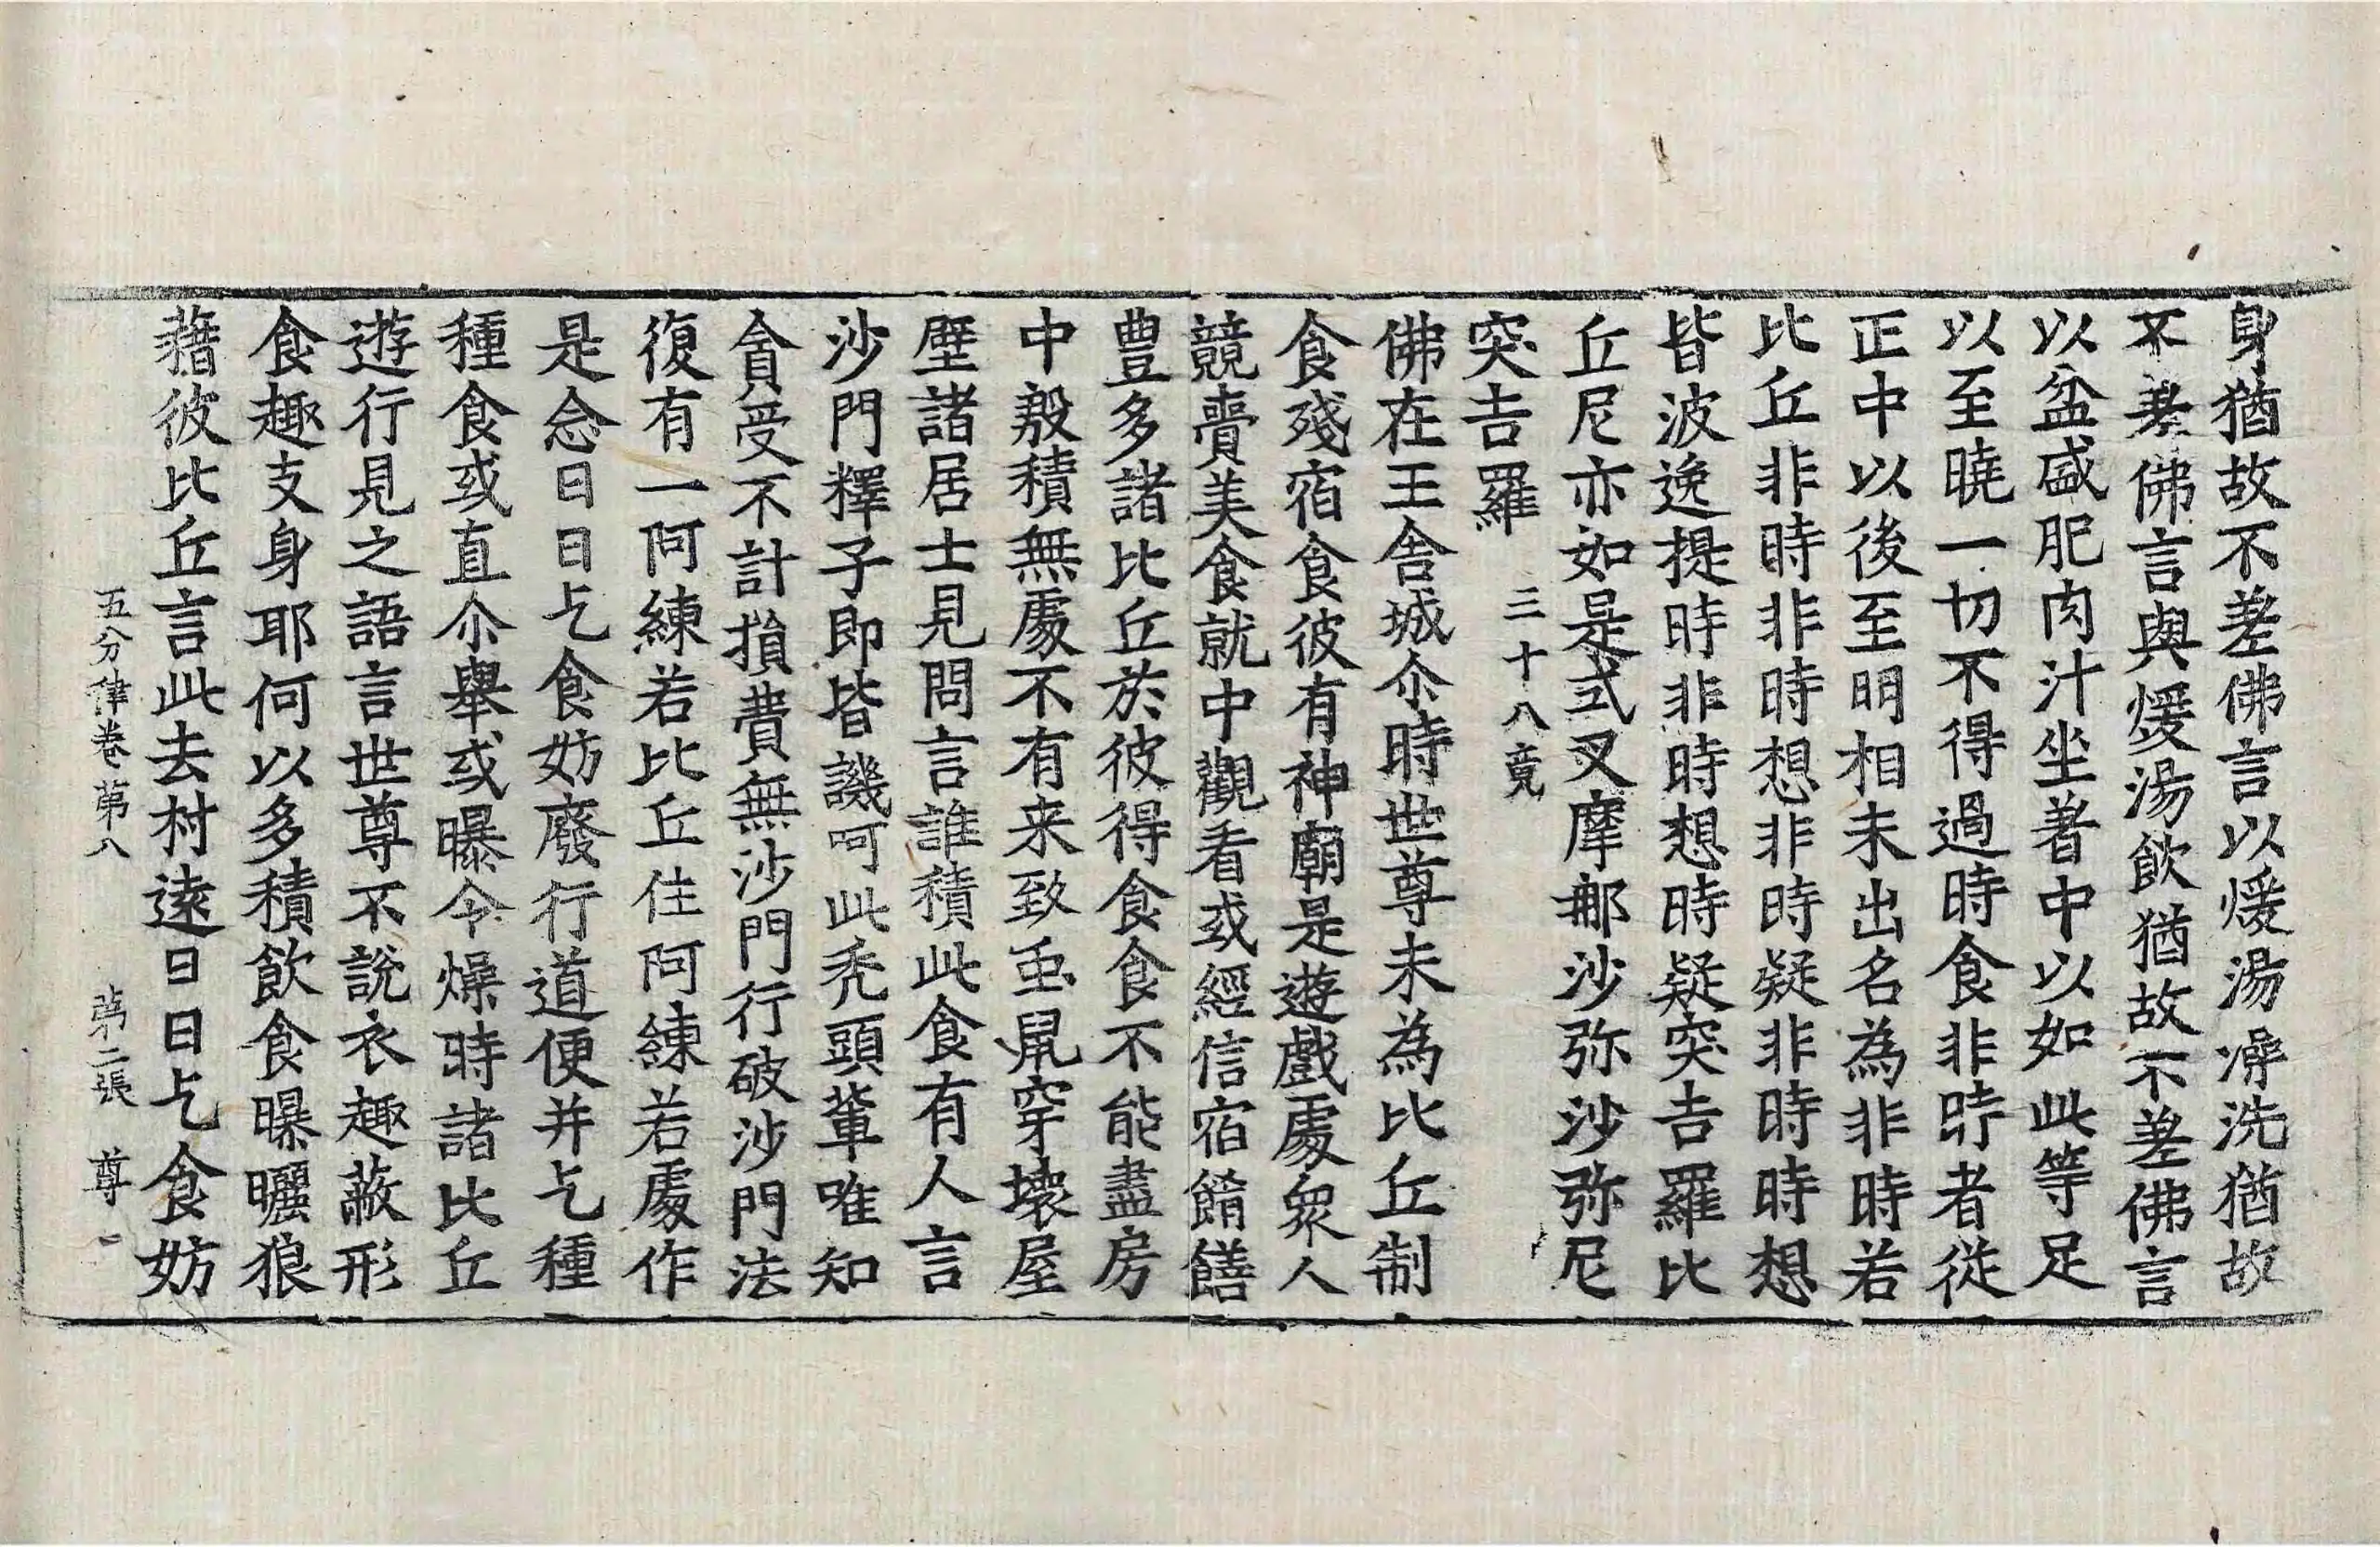 身猶故不差佛言以煖湯澡洗猶故
不差佛言與煖湯飲猶故不差佛言
以盆盛肥肉汁坐著中以如此等足
以至曉一切不得過時食非時者從
正中以後至明相未出名為非時若
比丘非時非時想非時疑非時時想
皆波逸提時非時想時疑突吉羅比
丘尼亦如是式叉摩那沙弥沙弥尼
突吉羅 三十八竟
佛在王舍城尒時世尊未為比丘制
食殘宿食彼有神廟是遊戲處衆人
競賷美食就中觀看或經信宿餚饍
豊多諸比丘於彼得食食不能盡房
中殽積無處不有来致䖝鼠穿壞屋
壁諸居士見問言誰積此食有人言
沙門釋子即皆譏呵此禿頭輩唯知
貪受不計損費無沙門行破沙門法
復有一阿練若比丘住阿練若處作
是念日日乞食妨廢行道便并乞種
種食或直尒舉或曝令燥時諸比丘
遊行見之語言世尊不說衣趣蔽形
食趣支身耶何以多積飲食曝曬狼
藉彼比丘言此去村遠日日乞食妨
五分律卷第八 第二張 尊